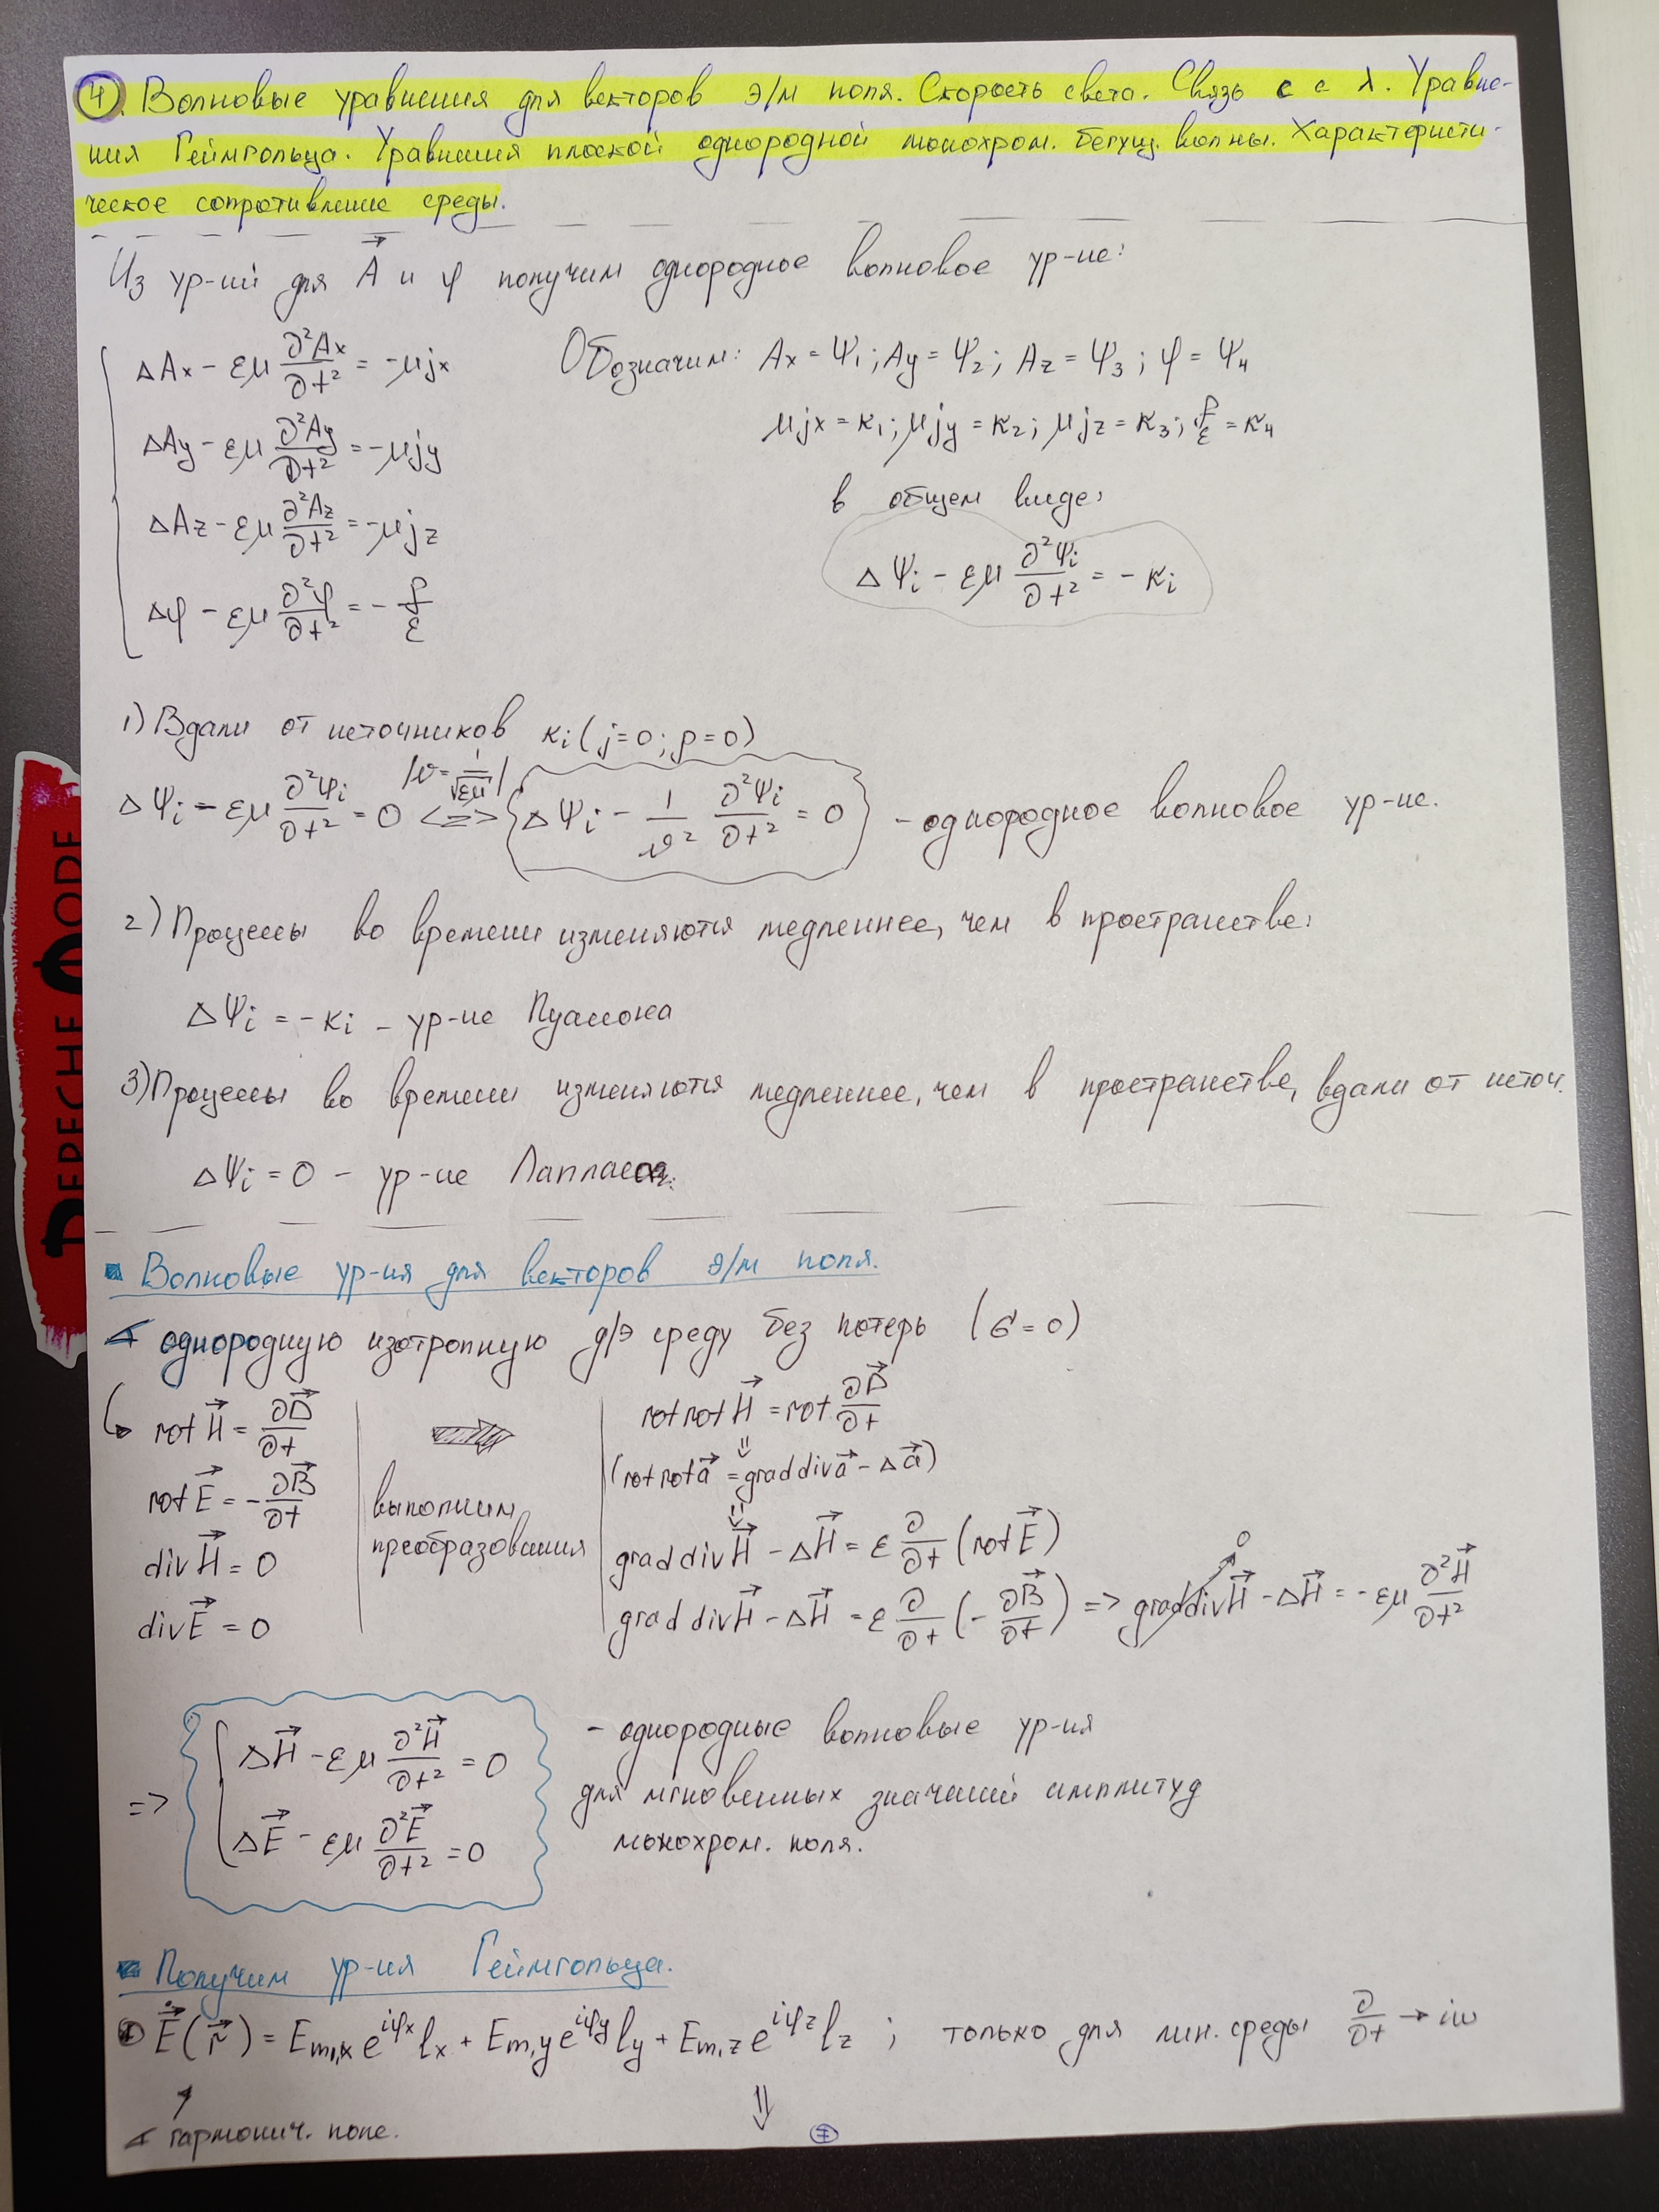 4. Волновые уравнения для векторов э/м поля. Скорость света. Связь c с λ. Уравне-
ния Геймгольца. Уравнения плоской однородной монохром. бегущ. волны. Характеристи-
ческое сопротивление среды.
Из ур-ий для A⃗ и φ получим однородное волновое ур-ие:
ΔAx - εμ ∂²Ax/∂t² = -μjx
ΔAy - εμ ∂²Ay/∂t² = -μjy
ΔAz - εμ ∂²Az/∂t² = -μjz
Δφ - εμ ∂²φ/∂t² = - ρ/ε
Обозначим: Ax = Ψ₁; Ay = Ψ₂; Az = Ψ₃; φ = Ψ₄
μjx = κ₁; μjy = κ₂; μjz = κ₃; ρ/ε = κ₄
в общем виде:
ΔΨi - εμ ∂²Ψi/∂t² = - κi
1) Вдали от источников κi (j=0; ρ=0)
ΔΨi - εμ ∂²Ψi/∂t² = 0 |v = 1/√εμ| <=> ΔΨi - 1/v² ∂²Ψi/∂t² = 0 - однородное волновое ур-ие.
2) Процессы во времени изменяются медленнее, чем в пространстве:
ΔΨi = -κi - ур-ие Пуассона
3) Процессы во времени изменяются медленнее, чем в пространстве, вдали от источ.
ΔΨi = 0 - ур-ие Лапласа.
DEPECHE MODE
Волновые ур-ия для векторов э/м поля.
однородную изотропную д/э среду без потерь (σ = 0)
rot H⃗ = ∂D⃗/∂t
rot E⃗ = - ∂B⃗/∂t
div H⃗ = 0
div E⃗ = 0
выполним
преобразования
rot rot H⃗ = rot ∂D⃗/∂t
(rot rot a⃗ = grad div a⃗ - Δa⃗)
grad div H⃗ - ΔH⃗ = ε ∂/∂t (rot E⃗)
grad div H⃗ - ΔH⃗ = ε ∂/∂t (- ∂B⃗/∂t) => grad div H⃗ →0 - ΔH⃗ = - εμ ∂²H⃗/∂t²
=> ΔH⃗ - εμ ∂²H⃗/∂t² = 0
ΔE⃗ - εμ ∂²E⃗/∂t² = 0
- однородные волновые ур-ия
для мгновенных значений амплитуд
монохром. поля.
Получим ур-ия Геймгольца.
E⃗(r⃗) = Em,x e^iφx lx + Em,y e^iφy ly + Em,z e^iφz lz ; только для лин. среды ∂/∂t → iω
гармонич. поле.
7